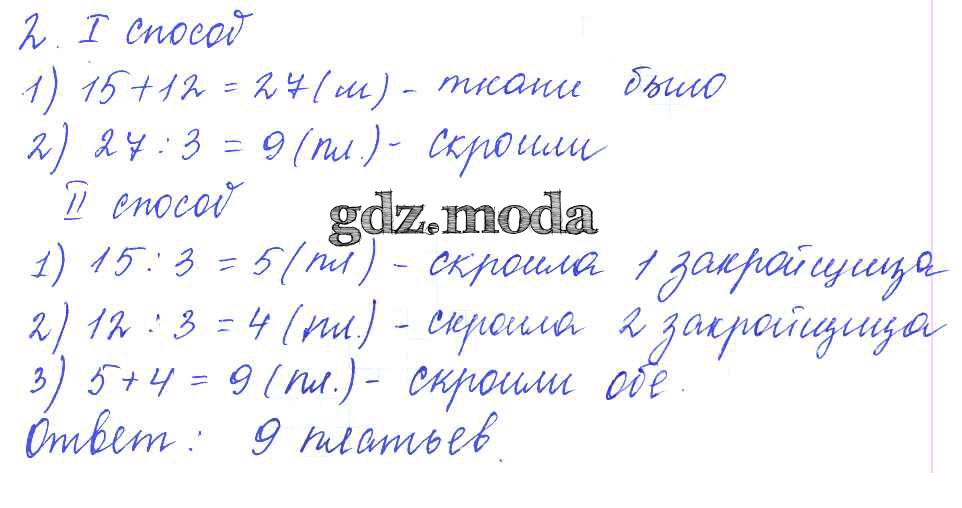 2. I способ
1) 15+12 = 27 (м) - ткани было
2) 27 : 3 = 9 (пл.) - скроили
II способ
gdz.moda
1) 15 : 3 = 5 (пл) - скроила 1 закройщица
2) 12 : 3 = 4 (пл.) - скроила 2 закройщица
3) 5+4 = 9 (пл.) - скроили обе.
Ответ: 9 платьев.